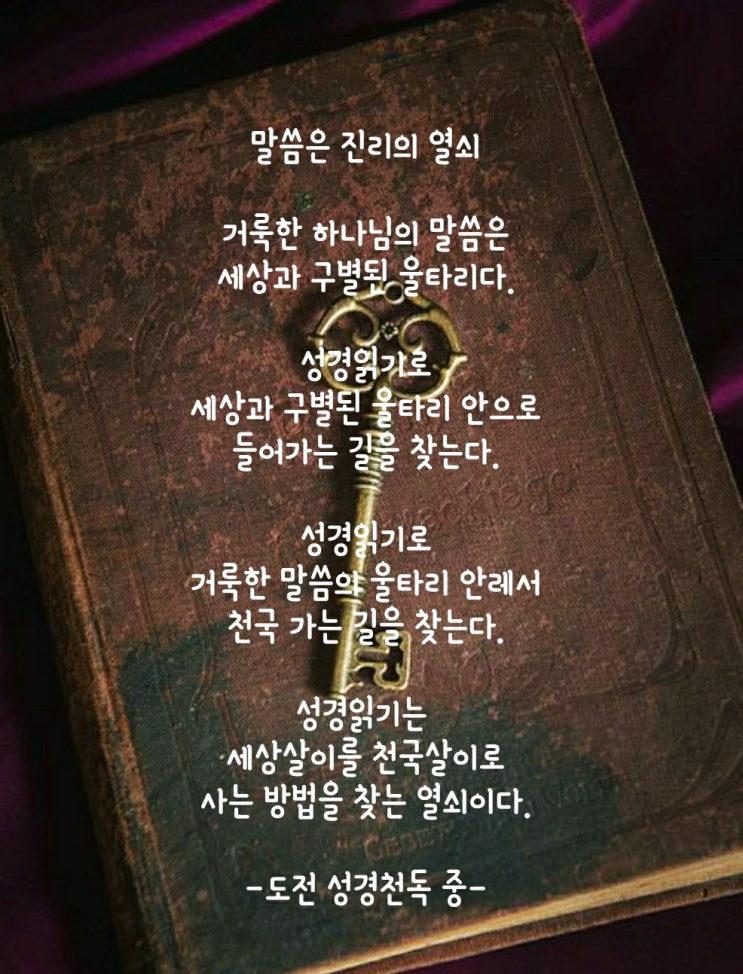 말씀은 진리의 열쇠
거룩한 하나님의 말씀은
세상과 구별된 울타리다.
성경읽기로
세상과 구별된 울타리 안으로
들어가는 길을 찾는다.
성경읽기로
거룩한 말씀의 울타리 안레서
천국 가는 길을 찾는다.
성경읽기는
세상살이를 천국살이로
사는 방법을 찾는 열쇠이다.
-도전 성경천독 중-